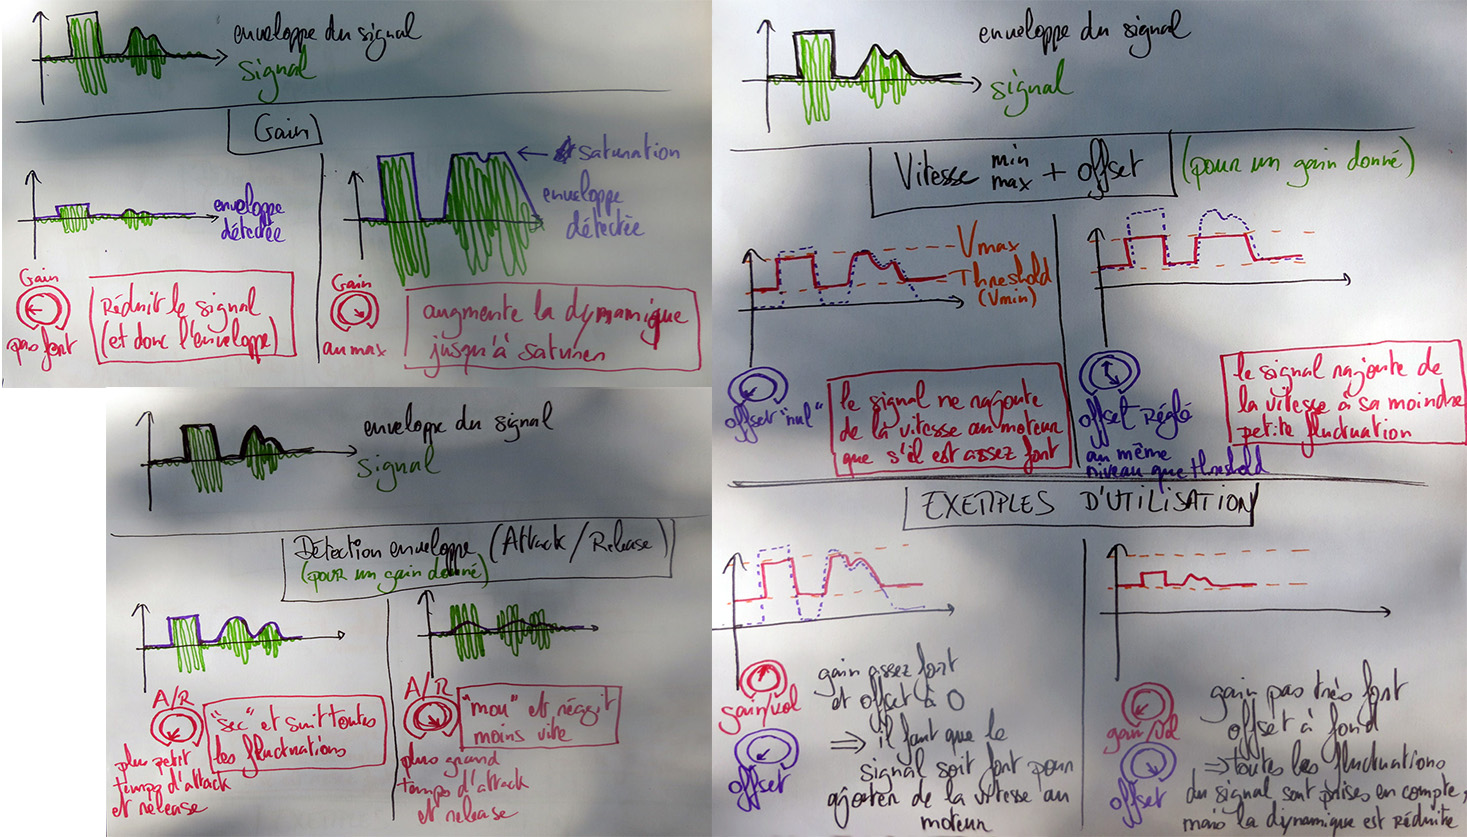 enveloppe du signal
signal
Gain
enveloppe
détectée
saturation
enveloppe
détectée
Gain
pas fort
Réduit le signal
(et donc l'enveloppe)
Gain
au max
augmente la dynamique
jusqu'à saturer
enveloppe du signal
signal
Détection enveloppe (Attack/Release)
(pour un gain donné)
A/R
plus petit
temps d'attack
et release
"sec" et suit toutes
les fluctuations
A/R
plus grand
temps d'attack
et release
"mou" et réagit
moins vite
enveloppe du signal
signal
Vitesse min max + offset
(pour un gain donné)
Vmax
Threshold
(Vmin)
offset "nul"
le signal ne rajoute
de la vitesse au moteur
que s'il est assez fort
offset Réglé
au même
niveau que threshold
le signal rajoute de
la vitesse à sa moindre
petite fluctuation
EXEMPLES D'UTILISATION
gain/vol
offset
gain assez fort
et offset à 0
⇒ il faut que le
signal soit fort pour
ajouter de la vitesse au
moteur
gain/vol
offset
gain pas très fort
offset à fond
⇒ toutes les fluctuations
du signal sont prises en compte,
mais la dynamique est réduite